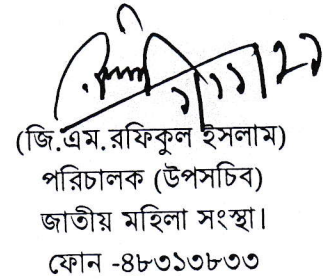 (জি.এম.রফিকুল ইসলাম)
পরিচালক (উপসচিব)
জাতীয় মহিলা সংস্থা।
ফোন -৪৮৩১৩৮৩৩